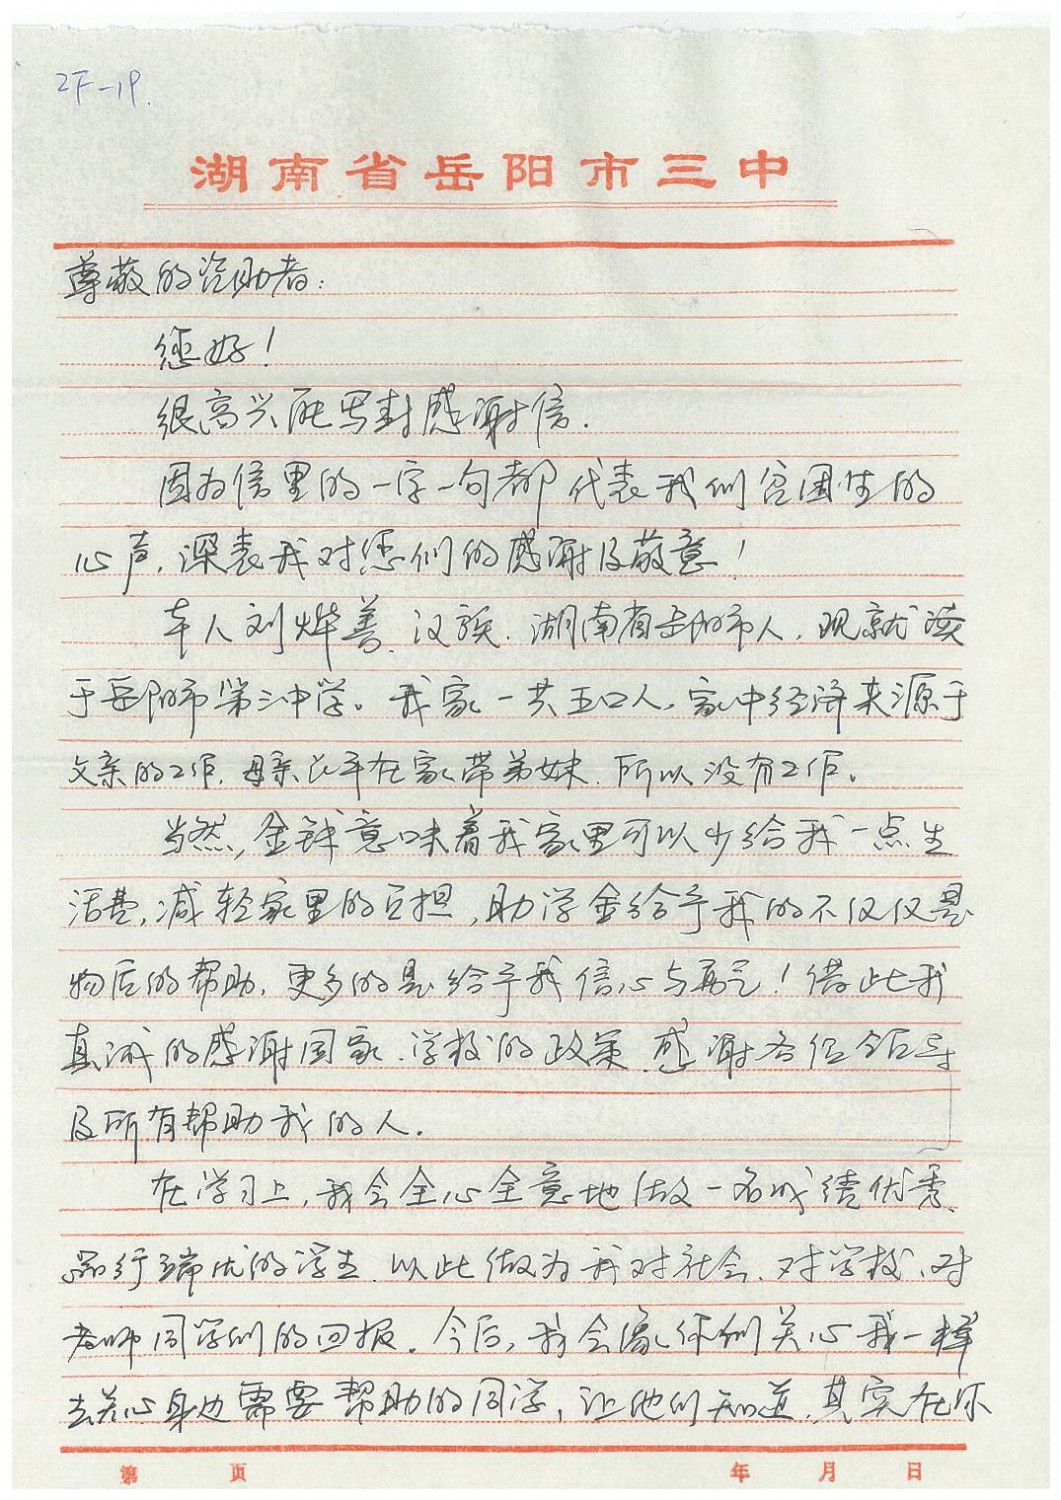 2F-19.
湖南省岳阳市三中
尊敬的资助者：
您好！
很高兴能写封感谢信.
因为信里的一字一句都代表我们贫困生的
心声，深表我对您们的感谢及敬意！
本人刘烨善、汉族.湖南省岳阳市人，现就读
于岳阳市第三中学。我家一共五口人，家中经济来源于
父亲的工作，母亲长年在家带弟妹.所以没有工作。
当然，金钱意味着我家里可以少给我一点生
活费，减轻家里的负担，助学金给予我的不仅仅是
物质的帮助，更多的是给予我信心与勇气！借此我
真诚的感谢国家、学校的政策.感谢各位领导
及所有帮助我的人.
在学习上，我会全心全意地做一名成绩优秀、
品行端优的学生.以此做为我对社会、对学校、对
老师同学们的回报.今后，我会像你们关心我一样
去关心身边需要帮助的同学，让他们知道，其实在你
第 页 年 月 日